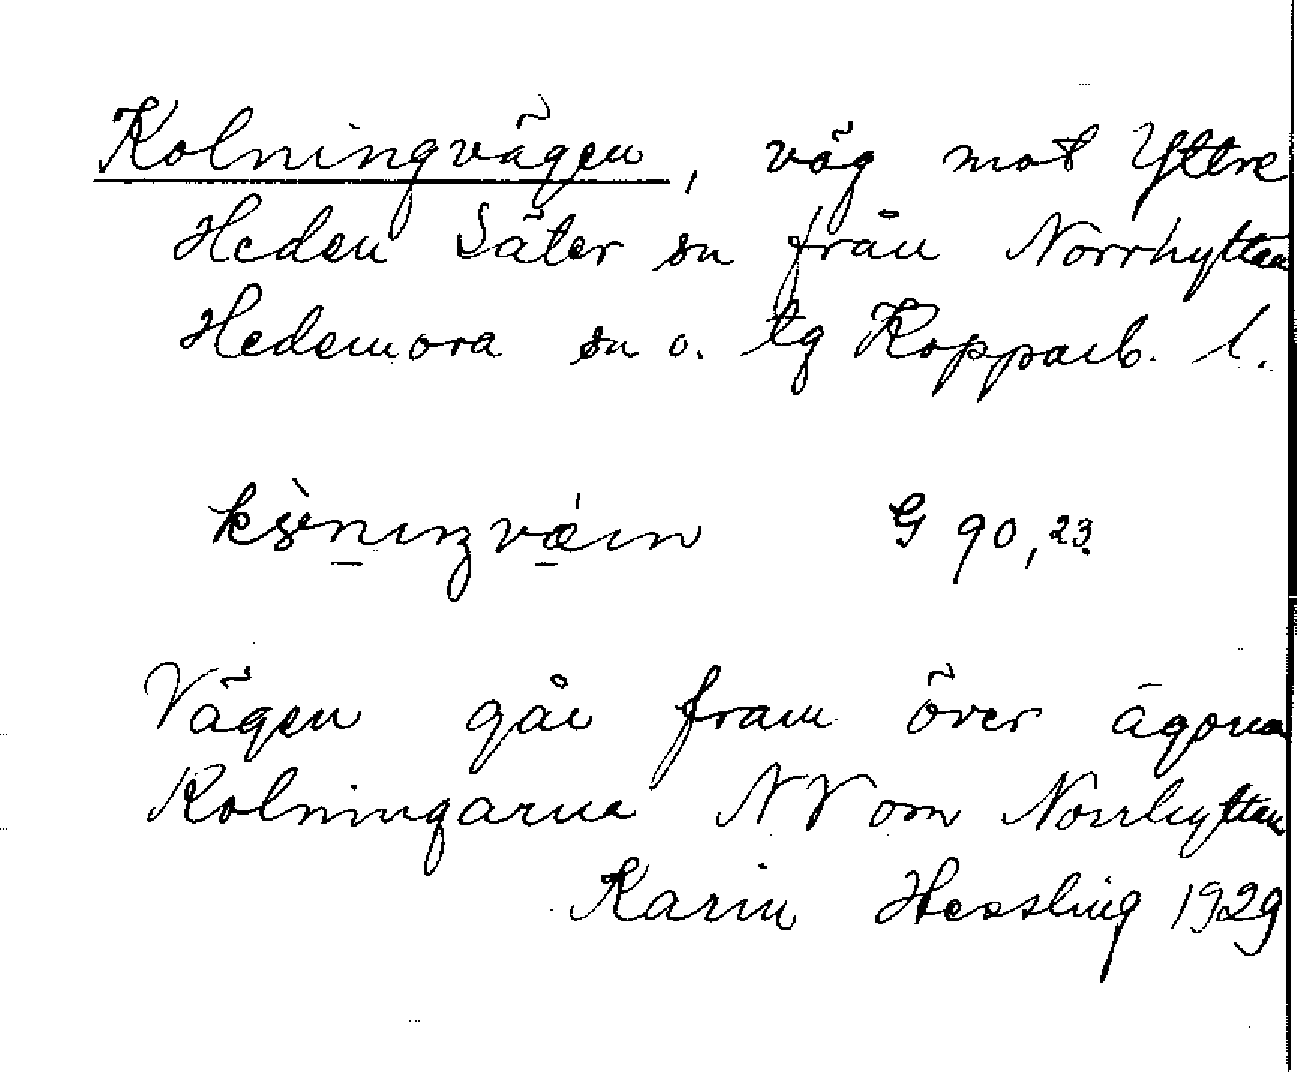 Kolningvägen, väg mot Yttre
Heden Säter sn från Norrhyttan
Hedemora sn o. tg Kopparb. l.
G 90,23
Vägen går fram över ägorna
Kolningarna NV om Norrhyttan
Karin Hessling 1929